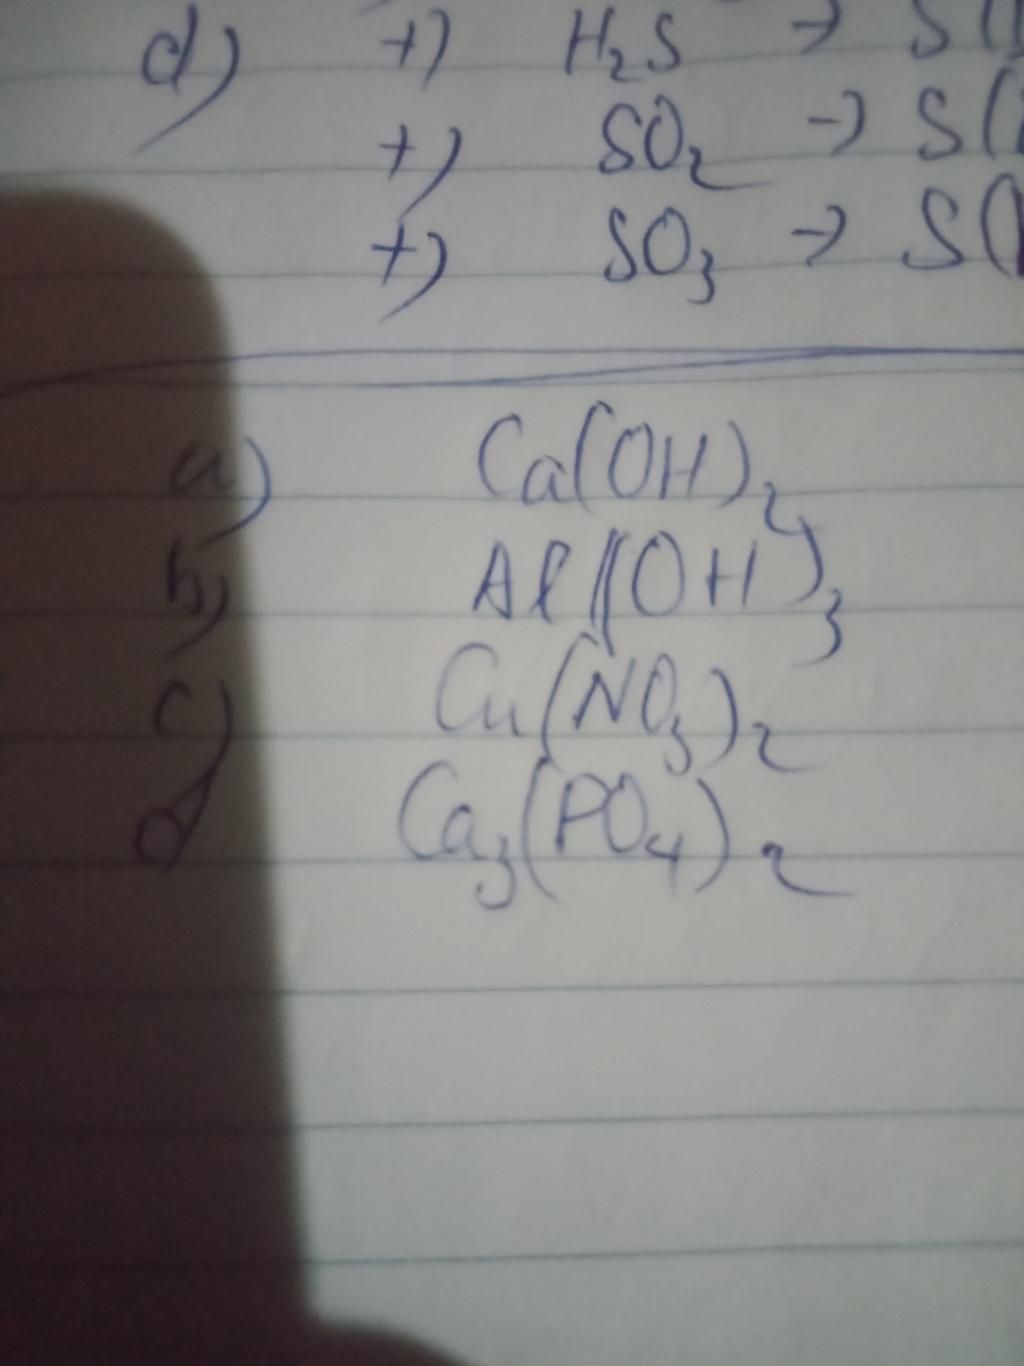 d) +) H₂S → S(
+) SO₂ → S(
+) SO₃ → S(
a) Ca(OH)₂
b) Al(OH)₃
c) Cu(NO₃)₂
d) Ca₃(PO₄)₂